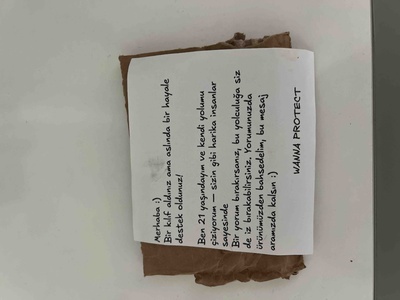 Merhaba :)
Bir kılıf aldınız ama aslında bir hayale
destek oldunuz!
Ben 21 yaşındayım ve kendi yolumu
çiziyorum — sizin gibi harika insanlar
sayesinde
Bir yorum bırakırsanız, bu yolculuğa siz
de iz bırakabilirsiniz. Yorumunuzda
ürünümüzden bahsedelim, bu mesaj
aramızda kalsın :)
WANNA PROTECT